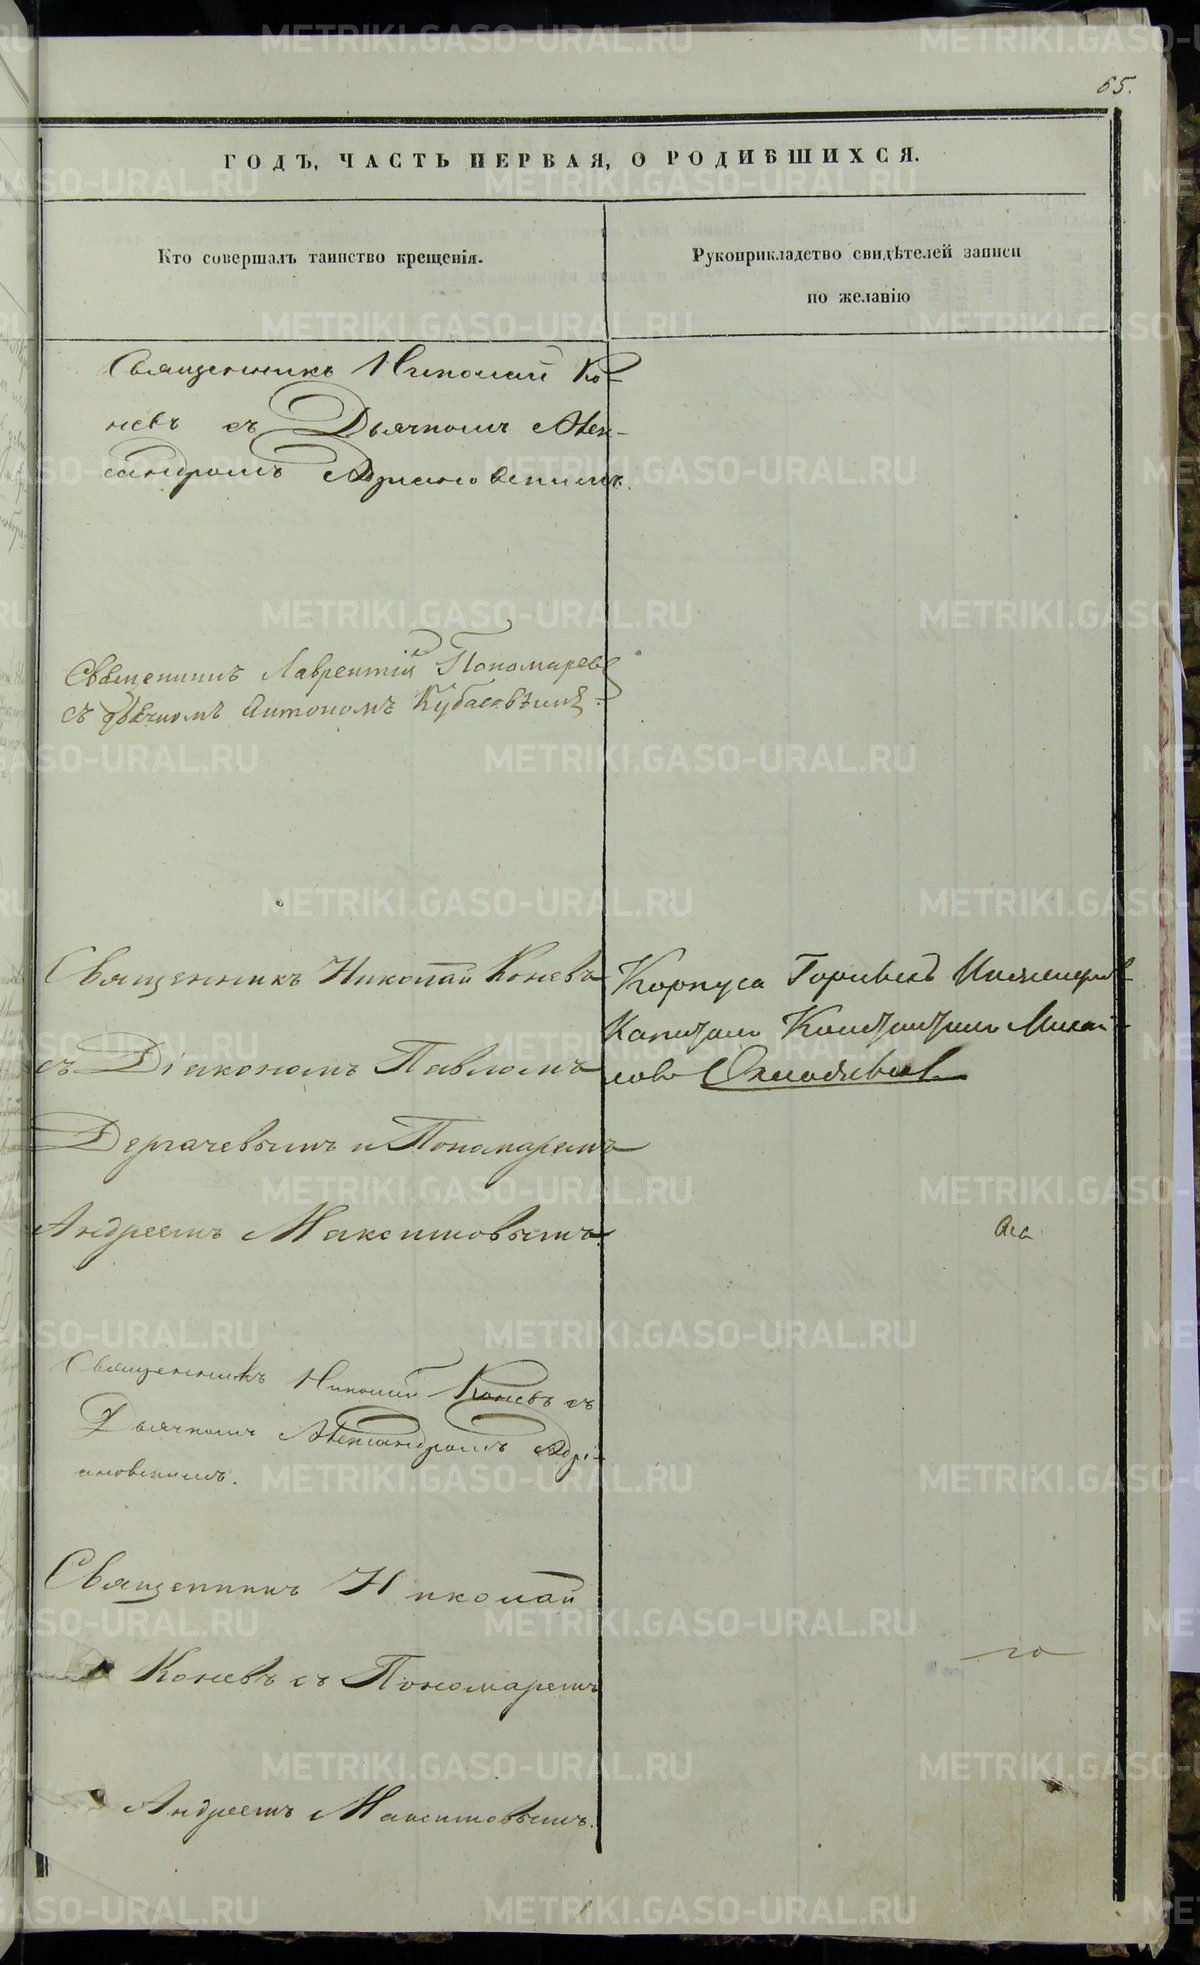 65.
ГОДЪ, ЧАСТЬ ПЕРВАЯ, О РОДИВШИХСЯ.
Кто совершалъ таинство крещенія.
Рукоприкладство свидѣтелей записи
по желанію
Священникъ Николай Ко-
невъ съ Дьячкомъ Алек-
сандромъ Адріановскимъ.
Священникъ Лаврентій Пономаревъ
съ дьячкомъ Антономъ
Священникъ Николай Коневъ
съ Діакономъ Павломъ
Дергачевымъ и Пономаремъ
Андреемъ Максимовымъ.
Корпуса Горныхъ Инженеровъ
Капитанъ Константинъ
Священникъ Николай Коневъ съ
Дьячкомъ Александромъ Адрі-
ановскимъ.
Священникъ Николай
Коневъ съ Пономаремъ
Андреемъ Максимовымъ.
METRIKI.GASO-URAL.RU